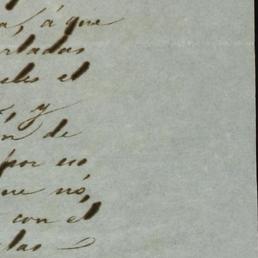 a, á que
rtadas
eles el
, y
n de
por no
ue nó,
con el
las